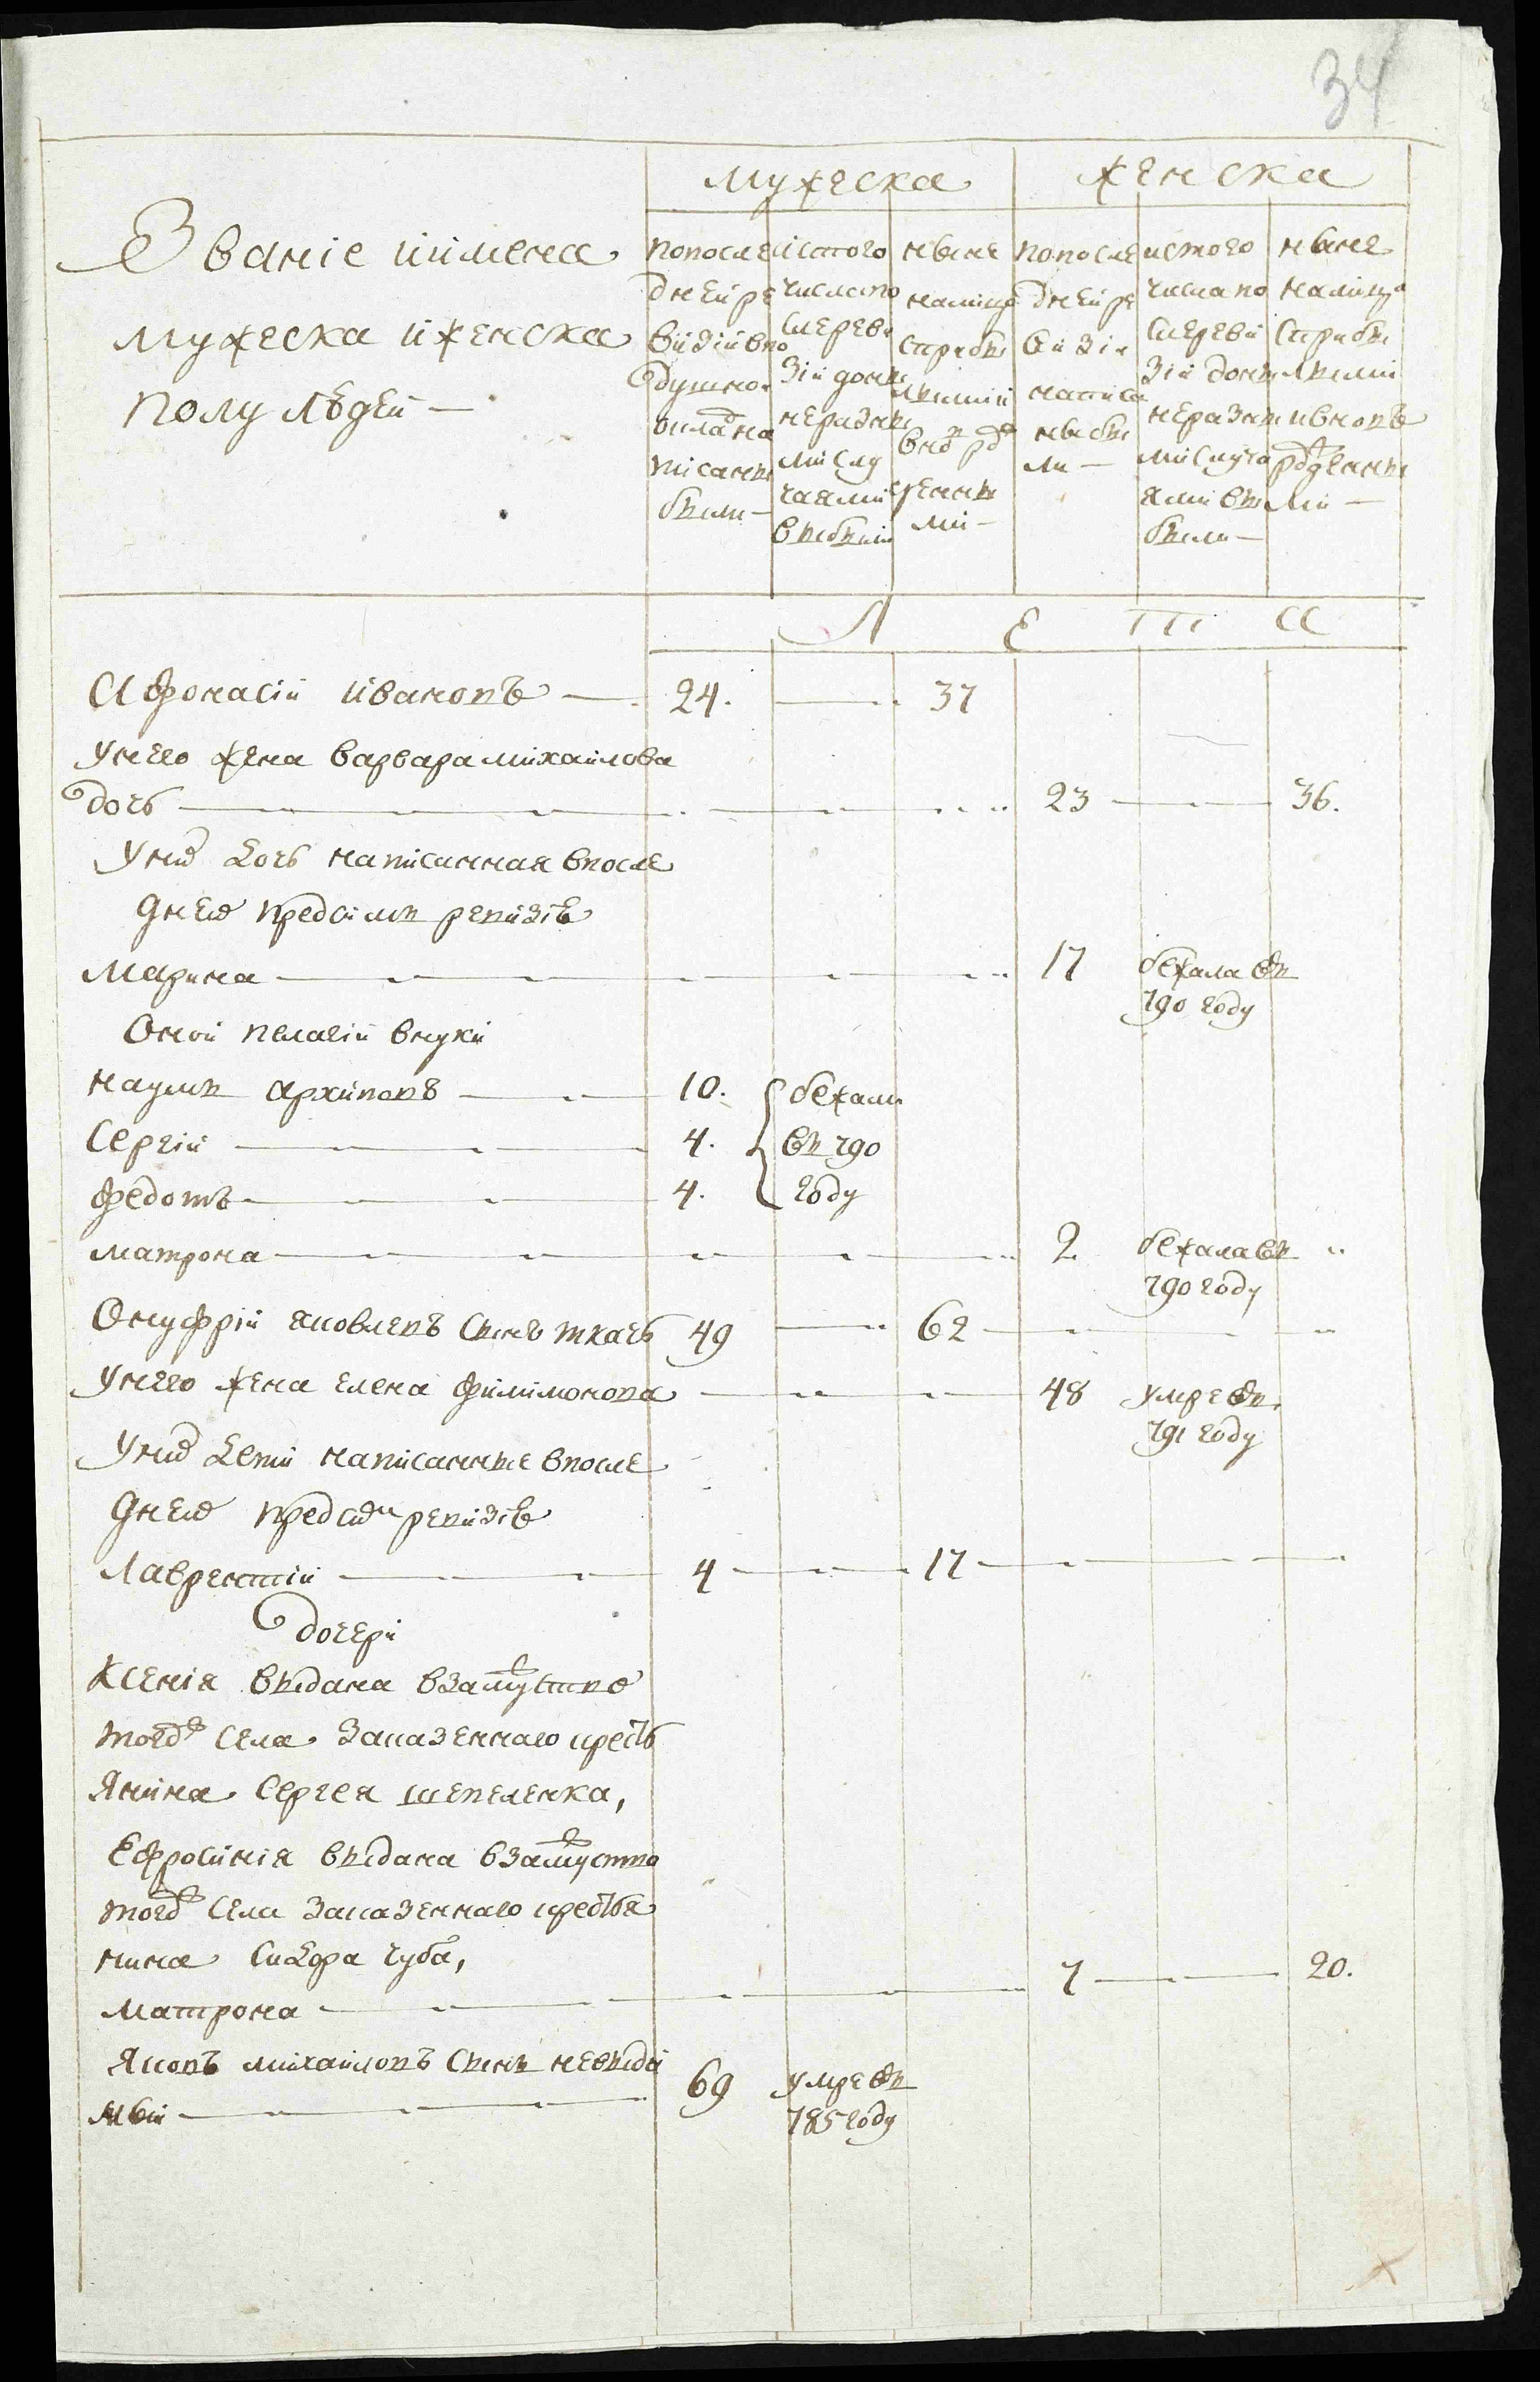 34
мужеска женска
Званіе иимена
мужеска иженска
полу людей —
попосле
дней ре
визіи впо
душно
окладна
писаны
были —
истого
числапо
сиереви
зіи доны
неразны
ми слу
чаями
выбыли
ныне
налице
сприбы
лыми
вно рож
денны
ми —
попосле
дней ре
визіи
написа
ны бы
ли —
истого
числа по
сиереви
зіи доны
неразны
ми случа
ями вы
были —
ныне
налицо
сприбы
лыми
ивновь
рожденны
ми —
Л Е Т А
Афонасій Ивановъ — 24. — 37
Унего жена варвара михаилова
дочь — 23 — 36.
Уних дочь написанная впосле
днею предсимъ ревизіею
Марина — 17 бежала въ
790 году
Оной пелагіи внуки
наумъ архиповъ — 10. бежали
Сергій — 4. въ 790
федотъ — 4. году
матрона — 2 бежала въ
790 году
Онуфрій яковлевъ сынъ ткачь 49 — 62
Унего жена елена филимонова — 48 умре въ
791 году
Уних дети написанные впосле
днею предсим ревизіею
Лаврентій — 4 — 17
дочери
Ксенія выдана взамуство
тогож села заказеннаго кресть
янина Сергея шепеленка,
Ефросинія выдана взамуство
тогож села заказеннаго крестья
нина Сидора чуба,
матрона — 7 — 20.
Яковъ михаиловъ сынъ
69 умре въ
785 году